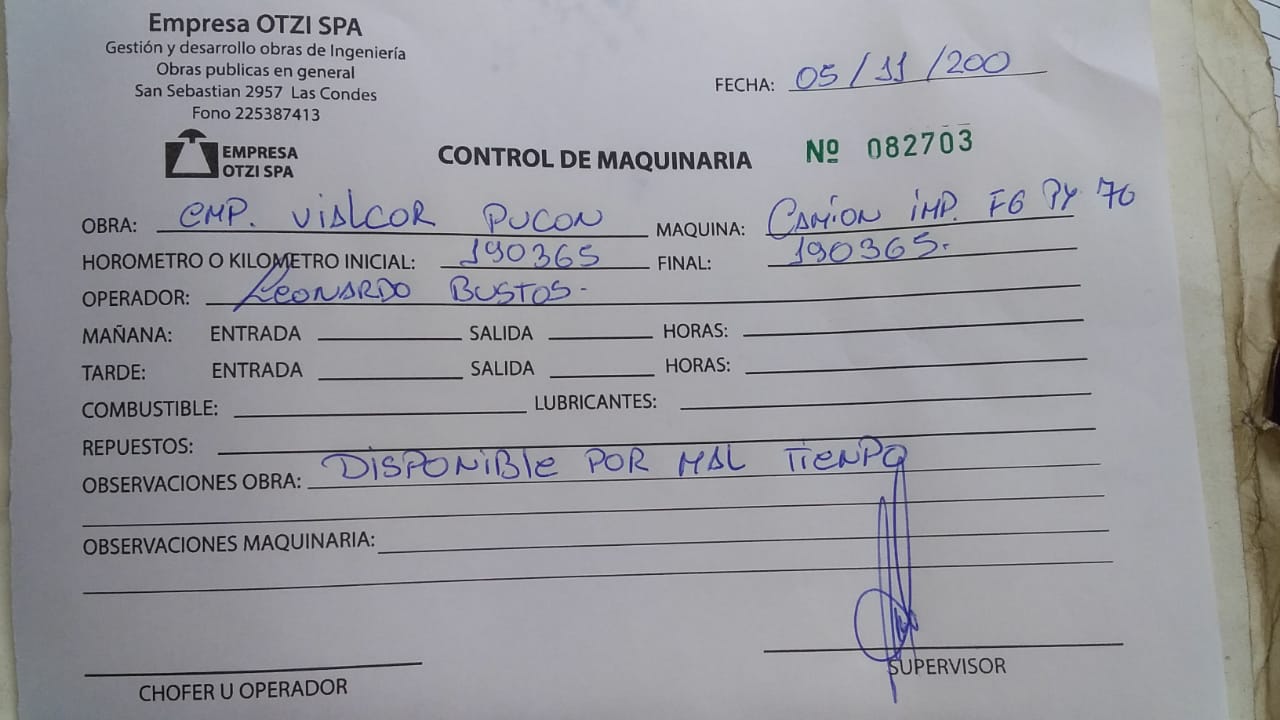 Empresa OTZI SPA
Gestión y desarrollo obras de Ingeniería
Obras publicas en general
San Sebastian 2957 Las Condes
Fono 225387413
FECHA: 05/11/200
EMPRESA
OTZI SPA
CONTROL DE MAQUINARIA Nº 082703
OBRA: EMP. VIALCOR PUCON MAQUINA: CAMION IMP. FG PY 70
HOROMETRO O KILOMETRO INICIAL: 190365 FINAL: 190365.
OPERADOR: LEONARDO BUSTOS.
MAÑANA: ENTRADA SALIDA HORAS:
TARDE: ENTRADA SALIDA HORAS:
COMBUSTIBLE: LUBRICANTES:
REPUESTOS:
OBSERVACIONES OBRA: DISPONIBLE POR MAL TIENPO
OBSERVACIONES MAQUINARIA:
CHOFER U OPERADOR SUPERVISOR